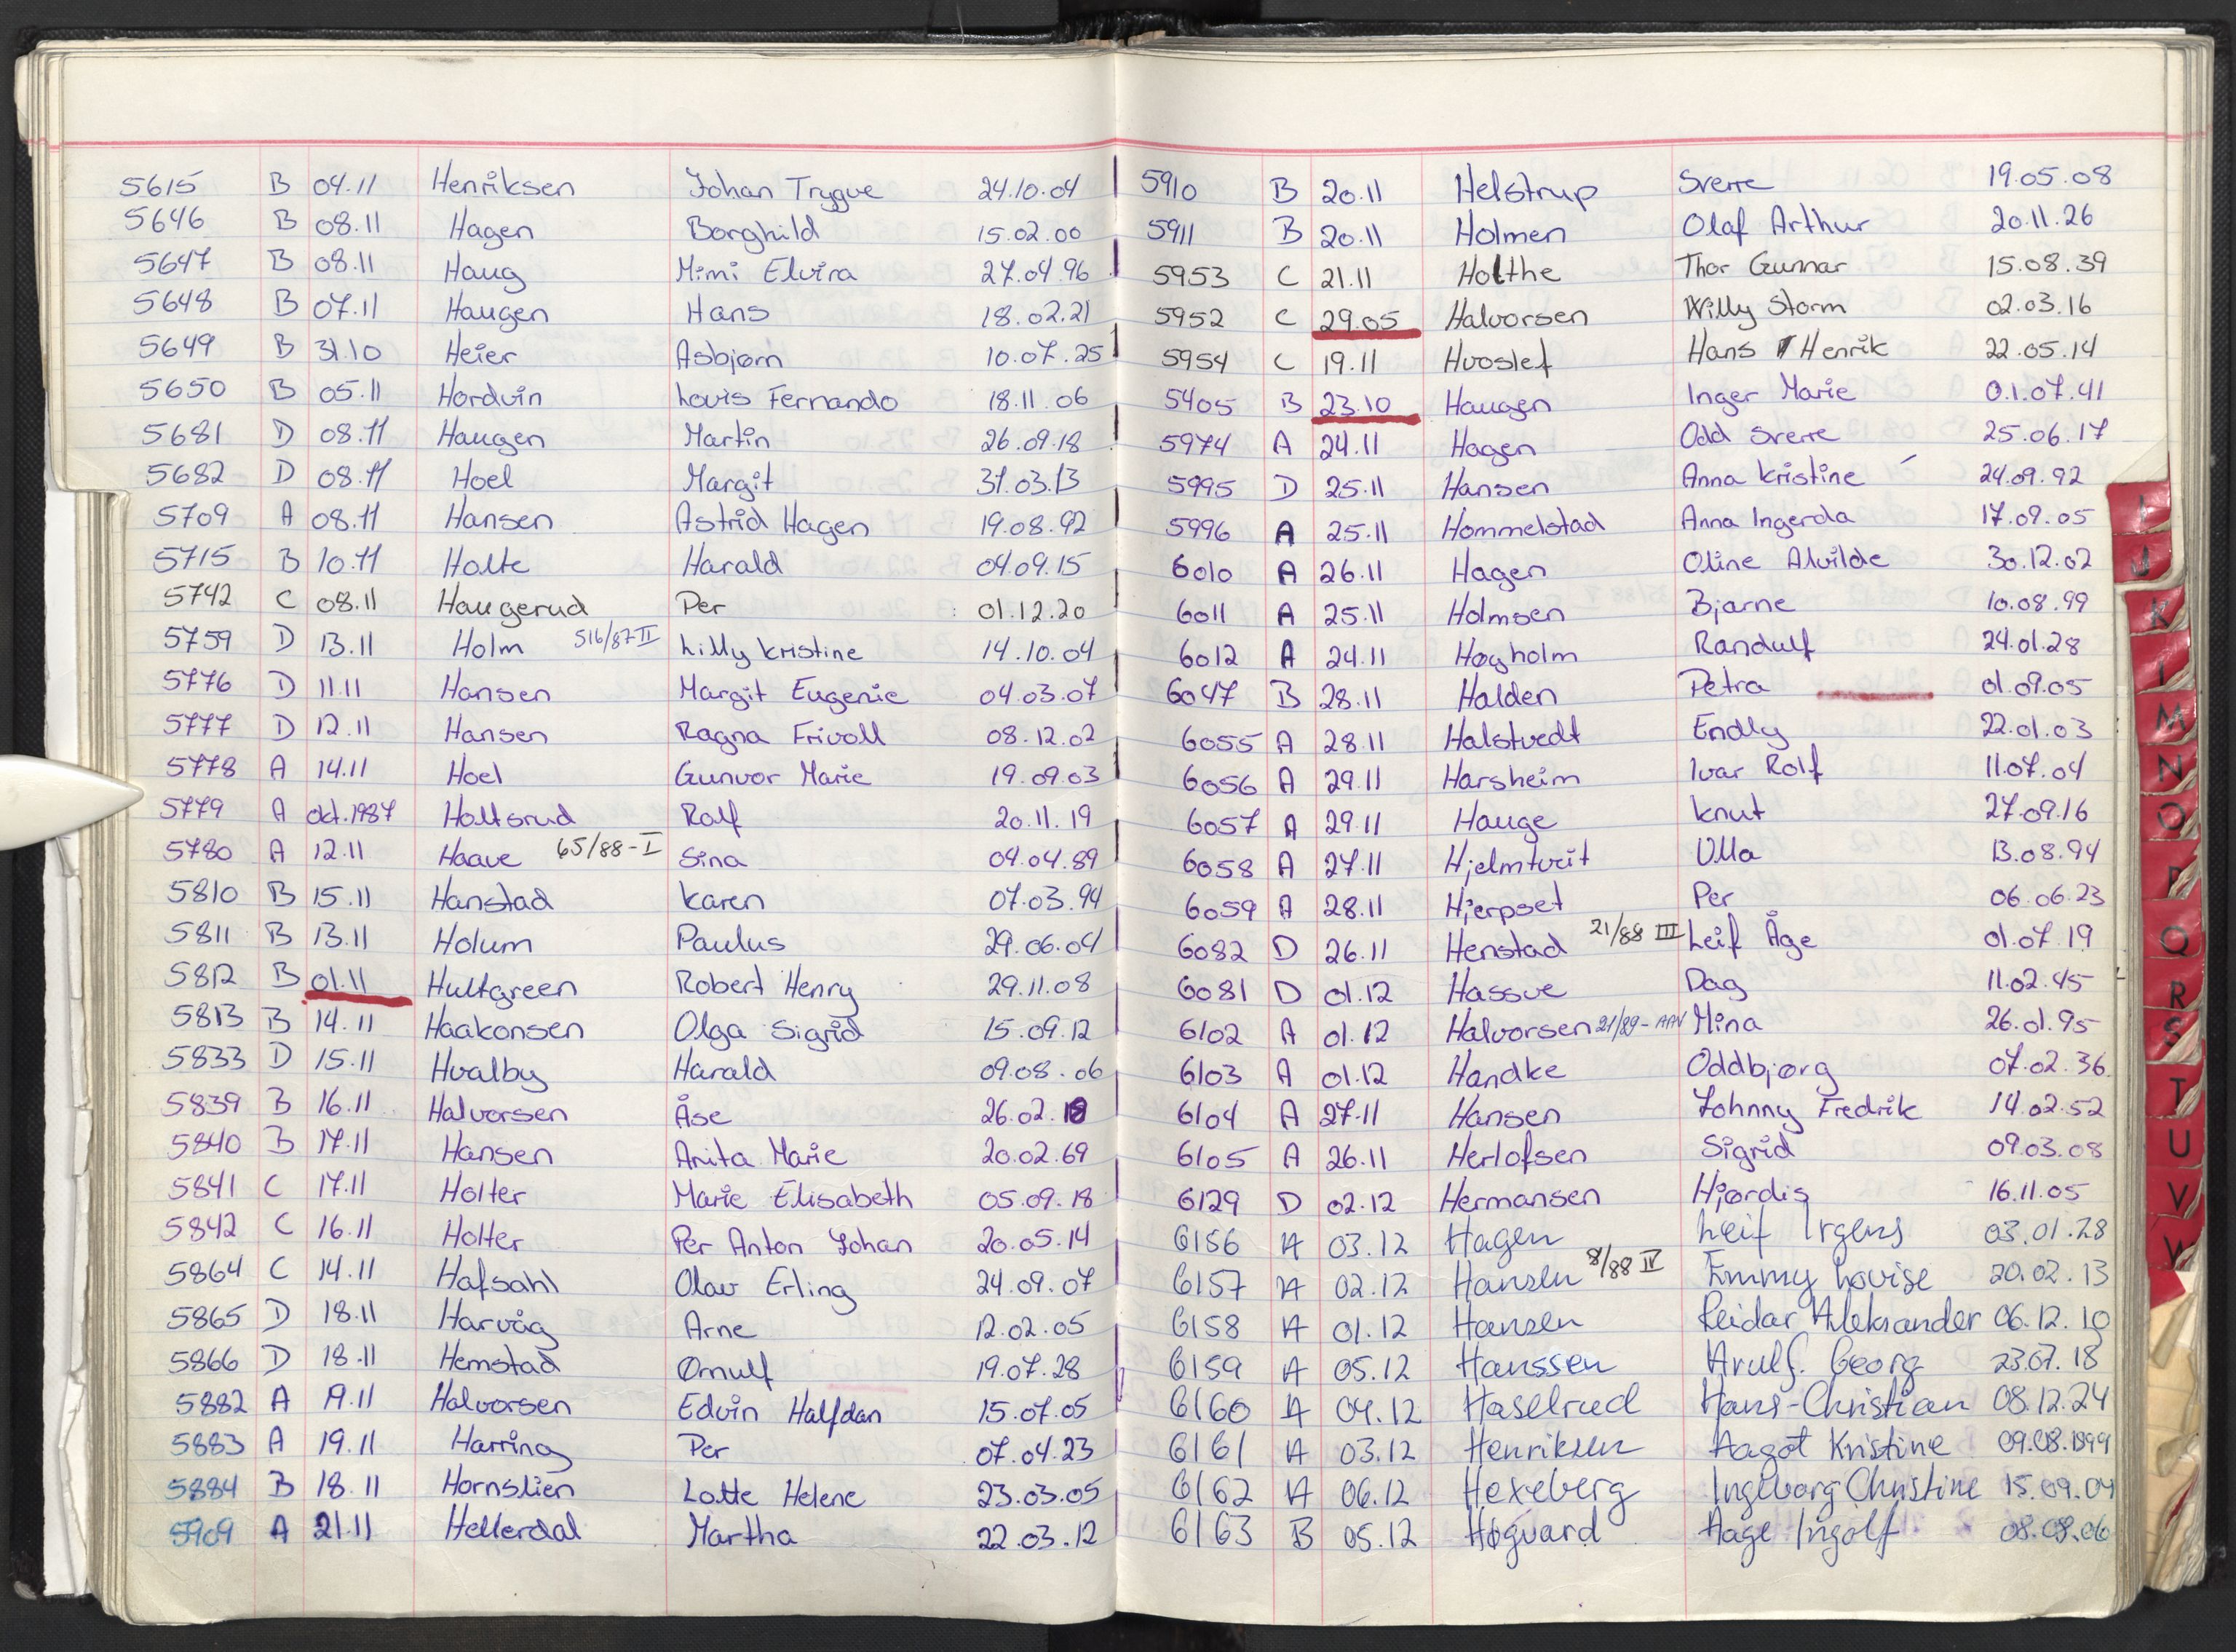 5615 B 04.11 Henriksen Johan Trygve 24.10.04
5646 B 08.11 Hagen Borghild 15.02.00
5647 B 08.11 Haug Mimi Elvira 27.04.96
5648 B 07.11 Haugen Hans 18.02.21
5649 B 31.10 Heier Asbjørn 10.07.25
5650 B 05.11 Hordvin Louis Fernando 18.11.06
5681 D 08.11 Haugen Martin 26.09.18
5682 D 08.11 Hoel Margit 31.03.13
5709 A 08.11 Hansen Astrid Hagen 19.08.92
5715 B 10.11 Holte Harald 04.09.15
5742 C 08.11 Haugerud Per 01.12.20
5759 D 13.11 Holm 516/87-II Lilly Kristine 14.10.04
5776 D 11.11 Hansen Margit Eugenie 04.03.07
5777 D 12.11 Hansen Ragna Frivoll 08.12.02
5778 A 14.11 Hoel Gunvor Marie 19.09.03
5779 A okt.1987 Holtsrud Rolf 20.11.19
5780 A 12.11 Haave 65/88-I Sina 04.04.89
5810 B 15.11 Hanstad Karen 07.03.94
5811 B 13.11 Holum Paulus 29.06.04
5812 B 01.11 Hultgreen Robert Henry 29.11.08
5813 B 14.11 Haakonsen Olga Sigrid 15.09.12
5833 D 15.11 Hvalby Harald 09.08.06
5839 B 16.11 Halvorsen Åse 26.02.18
5840 B 17.11 Hansen Anita Marie 20.02.69
5841 C 17.11 Holter Marie Elisabeth 05.09.18
5842 C 16.11 Holter Per Anton Johan 20.05.14
5864 C 14.11 Hafsahl Olav Erling 24.09.07
5865 D 18.11 Harvåg Arne 12.02.05
5866 D 18.11 Hemstad Ørnulf 19.07.28
5882 A 19.11 Halvorsen Edvin Halfdan 15.07.05
5883 A 19.11 Harring Per 07.04.23
5884 B 18.11 Hornslien Lotte Helene 23.03.05
5909 A 21.11 Hellerdal Martha 22.03.12
5910 B 20.11 Helstrup Sverre 19.05.08
5911 B 20.11 Holmen Olaf Arthur 20.11.26
5953 C 21.11 Holthe Thor Gunnar 15.08.39
5952 C 29.05 Halvorsen Willy Storm 02.03.16
5954 C 19.11 Hvoslef Hans Henrik 22.05.14
5405 B 23.10 Haugen Inger Marie 01.07.41
5974 A 24.11 Hagen Odd Sverre 25.06.17
5995 D 25.11 Hansen Anna Kristine 24.09.92
5996 A 25.11 Hommelstad Anna Ingerda 17.09.05
6010 A 26.11 Hagen Oline Alvilde 30.12.02
6011 A 25.11 Holmsen Bjarne 10.08.99
6012 A 24.11 Høyholm Randulf 24.01.28
6047 B 28.11 Halden Petra 01.09.05
6055 A 28.11 Halstvedt Endly 22.01.03
6056 A 29.11 Harsheim Ivar Rolf 11.07.04
6057 A 29.11 Hauge Knut 27.09.16
6058 A 27.11 Hjelmtveit Ulla 13.08.94
6059 A 28.11 Hjerpset Per 06.06.23
6082 D 26.11 Henstad 21/88 III Leif Åge 01.07.19
6081 D 01.12 Hassve Dag 11.02.45
6102 A 01.12 Halvorsen 21/89-AAV Mina 26.01.95
6103 A 01.12 Handke Oddbjørg 07.02.36
6104 A 27.11 Hansen Johnny Fredrik 14.02.52
6105 A 26.11 Herlofsen Sigrid 09.03.08
6129 D 02.12 Hermansen Hjørdis 16.11.05
6156 A 03.12 Hagen Leif Irgens 03.01.28
6157 A 02.12 Hansen 8/88 IV Emmy Lovise 20.02.13
6158 A 01.12 Hansen Reidar Aleksander 06.12.10
6159 A 05.12 Hanssen Arulf. Georg 23.07.18
6160 A 04.12 Haselrud Hans-Christian 08.12.24
6161 A 03.12 Henriksen Aagot Kristine 09.08.1899
6162 A 06.12 Hexeberg Ingeborg Christine 15.09.04
6163 B 05.12 Høgvard Aage Ingolf 08.08.06
I
J
K
M
N
O
P
Q
R
S
T
U
V
W